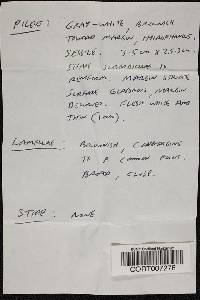 PILEUS: GRAY-WHITE, BROWNISH
TOWARD MARGIN, HYGROPHANOUS,
SESSILE. 3-5cm x 2.5-3cm
SUBORBICULAR TO
RENIFORM. MARGIN STRIATE
SURFACE GLABROUS, MARGIN
FLESH WHITE AND
THIN (1mm).
LAMELLAE: BROWNISH, CONVERGING
TO A COMMON POINT.
BROAD, CLOSE.
STIPE: NONE
CORT007276